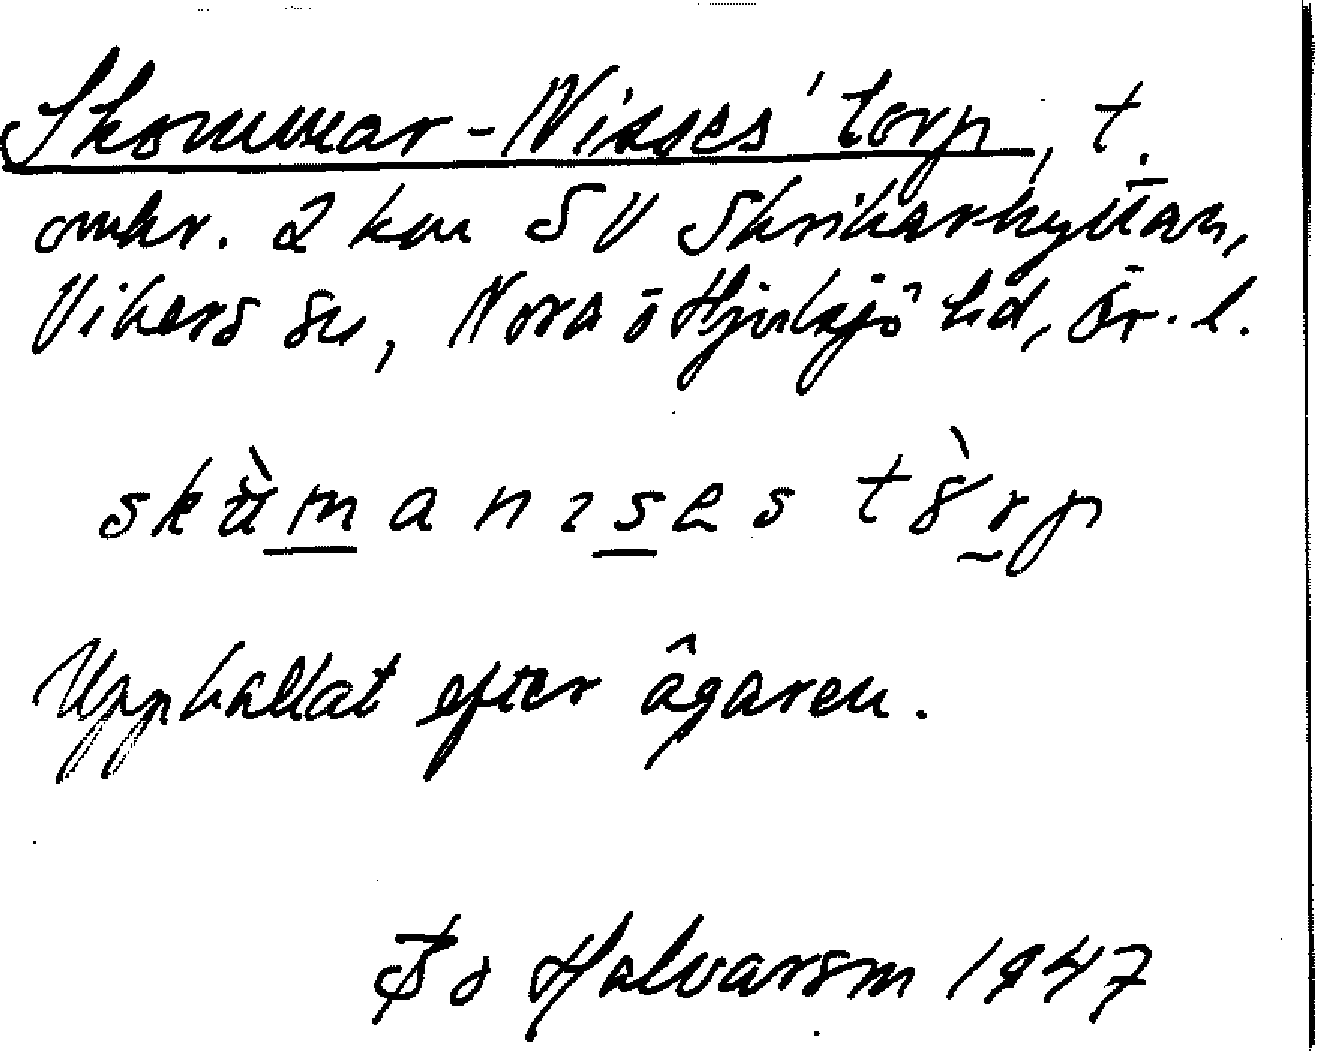 Skommar-Nisses torp, t.
omkr. 2 km SV Skrikarhyttan,
Vikers sn, Nora o Hjulsjö hd, Ör. l.
skɯ̀manɪses tòrp
Uppkallat efter ägaren.
Bo Halvarson 1947